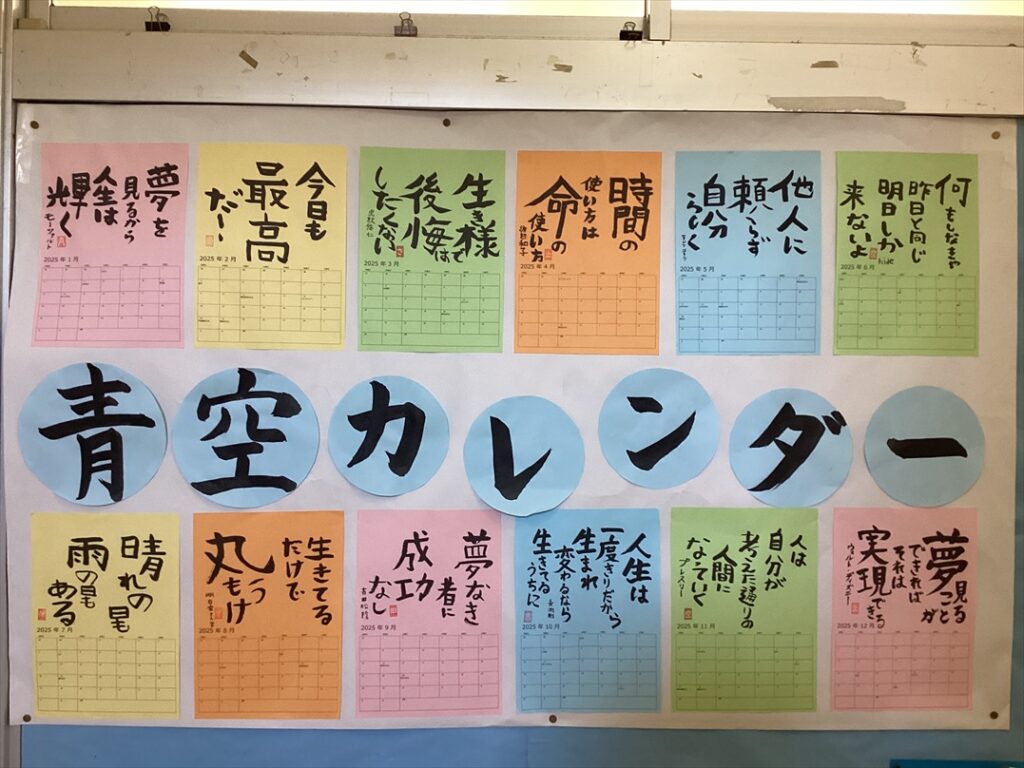 夢を
見るから
人生は
輝く
モーツァルト
2025年1月
今日も
最高
だー!
2025年2月
生き様で
後悔は
したくない
虎杖悠仁
2025年3月
時間の
使い方は
命の
使い方
渡辺和子
2025年4月
他人に
頼らず
自分
らしく
2025年5月
何もしなきゃ
昨日と同じ
明日しか
来ないよ
hide
2025年6月
青空カレンダー
晴れの日も
雨の日も
ある
2025年7月
生きてる
だけで
丸もうけ
2025年8月
夢なき
者に
成功
なし
吉田松陰
2025年9月
人生は
一度きりだから
生まれ
変わるなら
生きてる
うちに
2025年10月
人は
自分が
考えた通りの
人間に
なっていく
プレスリー
2025年11月
夢見る
ことが
できれば
それは
実現できる
ウォルト・ディズニー
2025年12月